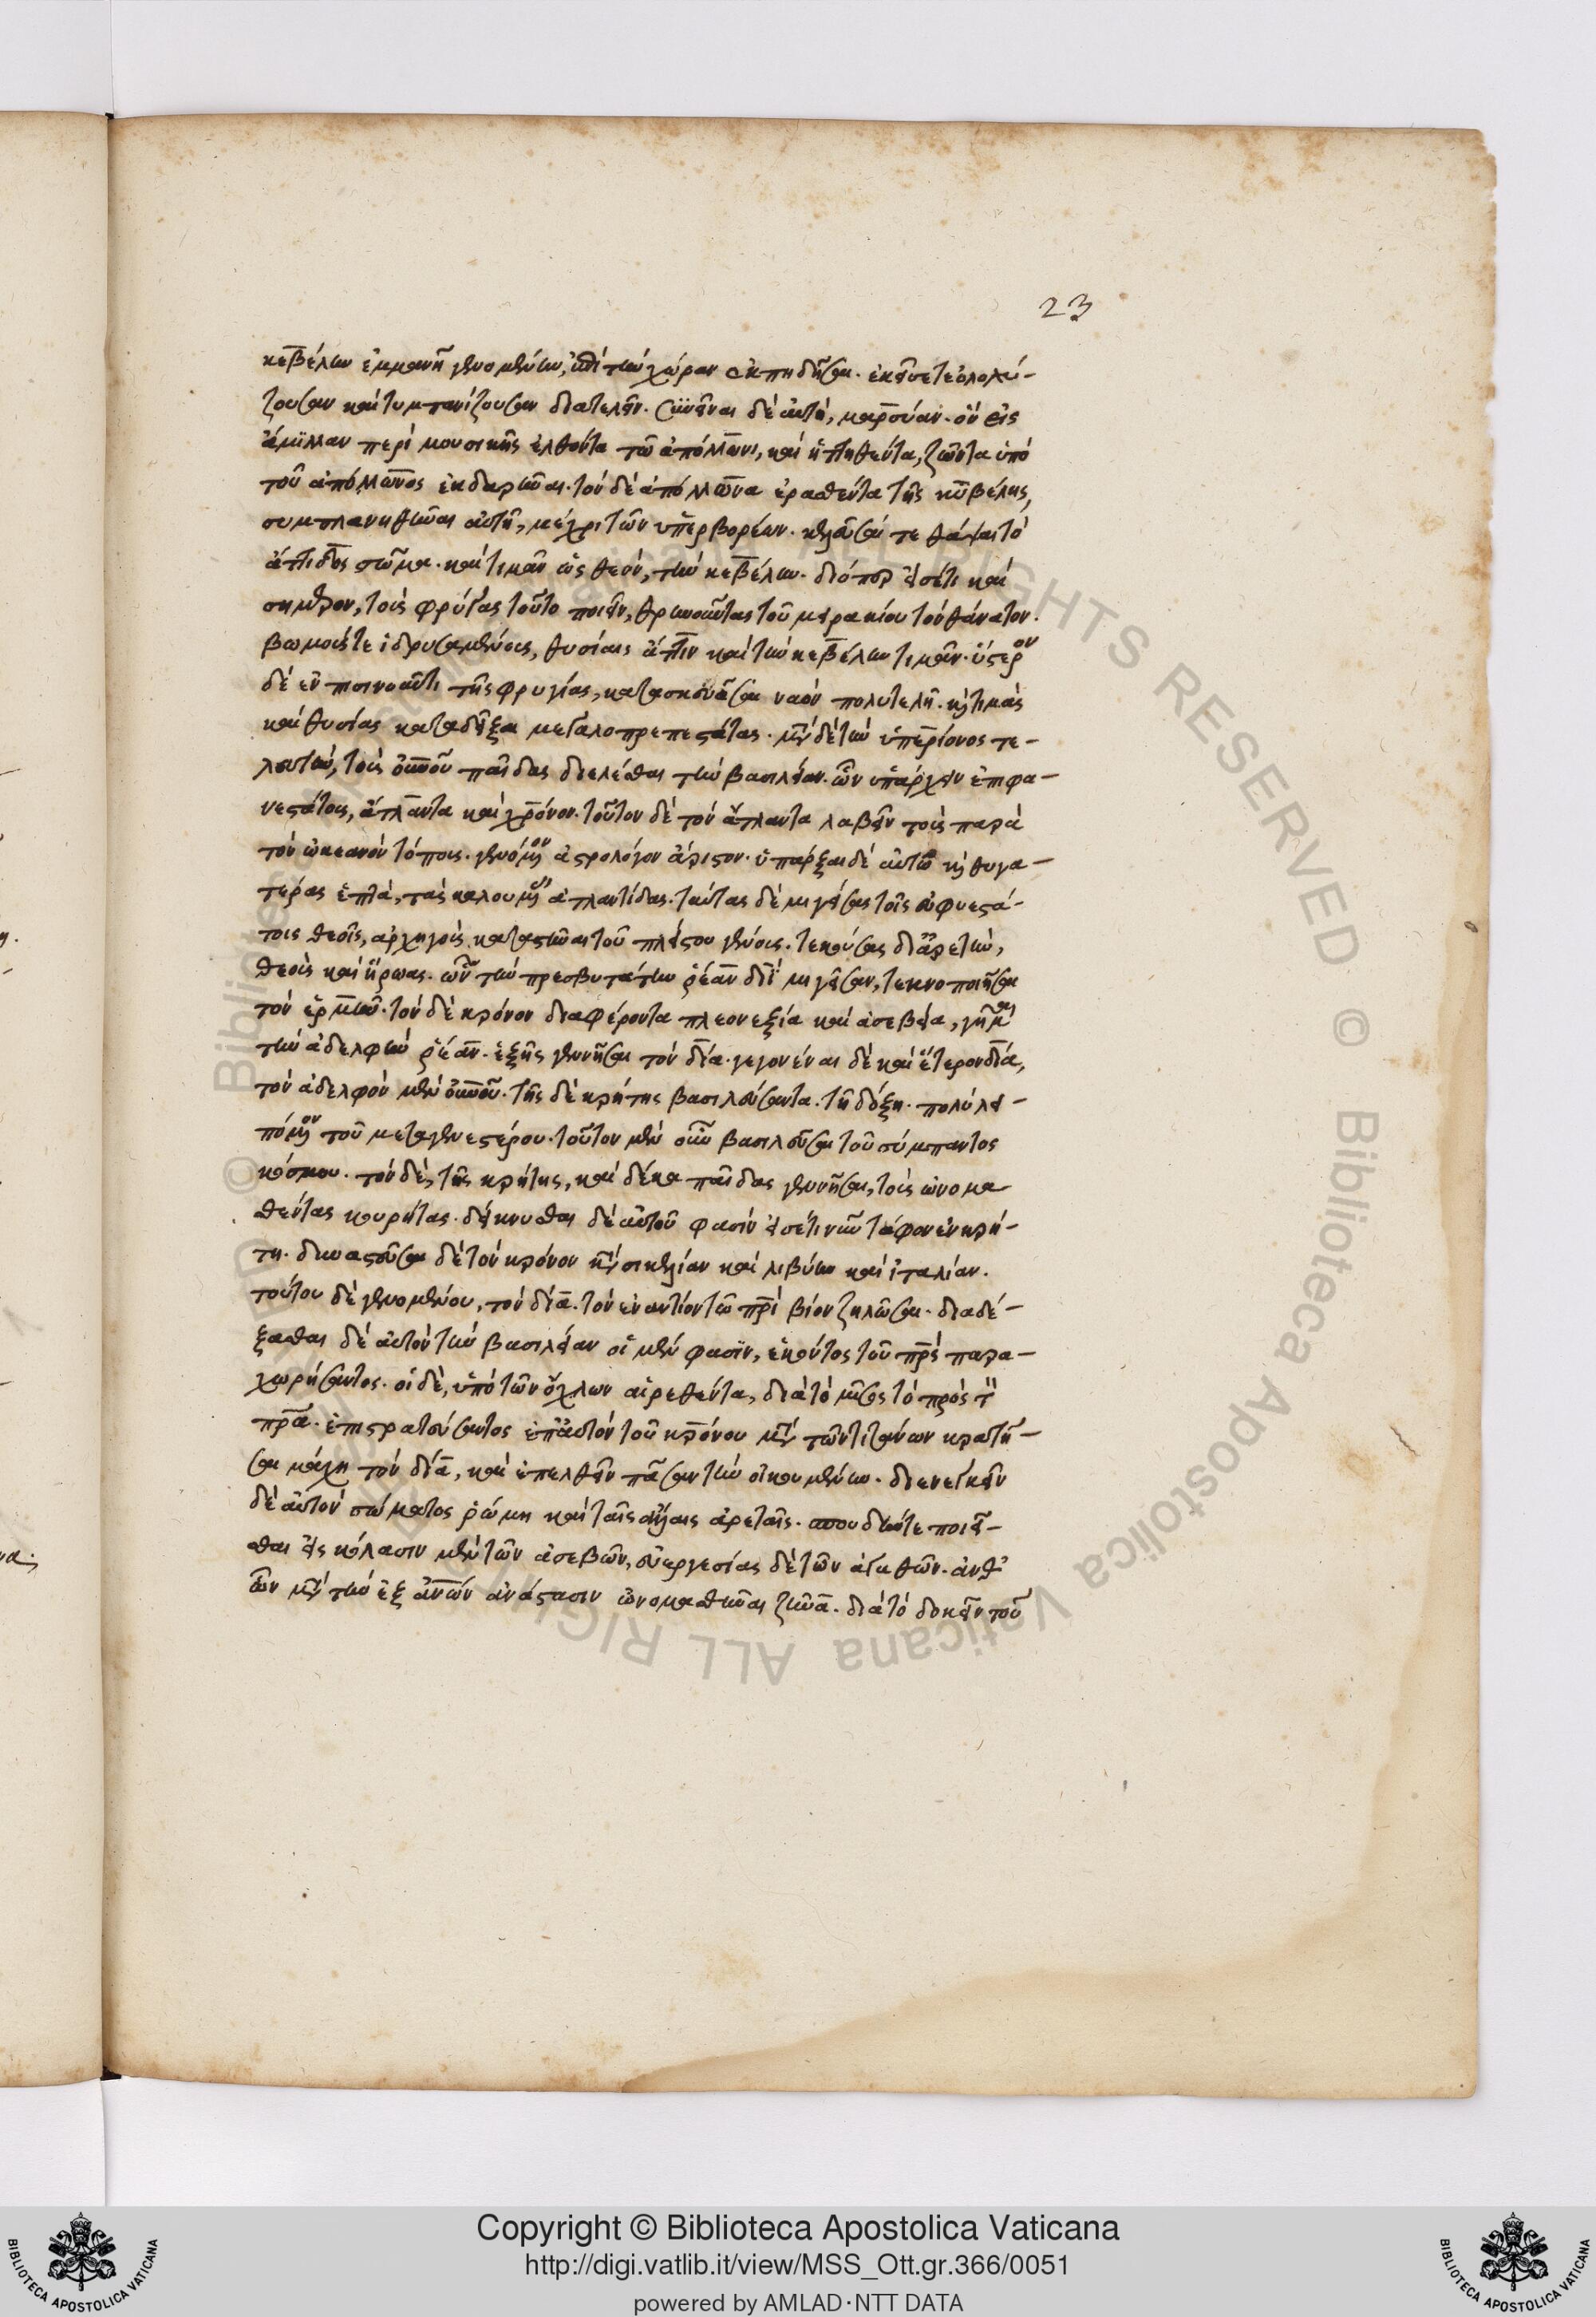 23
κεβέλην ἐμμανῆ γενομένην, ἐπὶ τὴν χώραν ἐκπηδῆσαι. ἐκεῖνσετε ὀλολύ-
ζουσαν καὶ τυμπανίζουσαν διατελεῖν. συνεῖναι δὲ αὐτῇ, μαρσύαν. ὃν εἰς
ἅμιλλαν περὶ μουσικῆς ἐλθόντα τῶ ἀπόλλωνι, καὶ ἡττηθέντα, ζῶντα ὑπὸ
τοῦ ἀπόλλωνος ἐκδαρῆναι. τὸν δὲ ἀπόλλωνα ἐρασθέντα τῆς κυβέλης,
συμπλανηθῆναι αὐτῇ, μέχρι τῶν ὑπερβορέων. κελεῦσαί τε θάψαι τὸ
ἄττιδος σῶμα. καὶ τιμᾶν ὡς θεὸν, τὴν κεβέλην. διόπερ εἰσέτι καὶ
σήμερον, τοὺς φρύγας τοῦτο ποιεῖν, θρηνοῦντας τοῦ μειρακίου τὸν θάνατον.
βωμούς τε ἱδρυσαμένους, θυσίαις ἄττιν καὶ τὴν κεβέλην τιμᾶν. ὕστερον
δὲ ἐν πισινοῦντι τῆς φρυγίας, κατασκευάσαι ναὸν πολυτελῆ. κ τιμὰς
καὶ θυσίας καταδεῖξαι μεγαλοπρεπεστάτας. μετὰ δὲ τὴν ὑπερίονος τε-
λευτὴν, τοὺς οὐνοῦ παῖδας διελέσθαι τὴν βασιλείαν. ὧν ὑπάρχειν ἐπιφα-
νεστάτους, ἄτλαντα καὶ χρόνον. τοῦτον δὲ τὸν ἄτλαντα λαβεῖν τοὺς παρὰ
τὸν ὠκεανὸν τόπους. γενόμενον ἀστρολόγον ἄριστον. ὑπάρξαι δὲ αὐτῶ κ θυγα-
τέρας ἑπτὰ, τὰς καλουμένας ἀτλαντίδας. ταύτας δὲ μιγείσας τοῖς εὐφυεστά-
τοις θεοῖς, ἀρχηγοὺς καταστῆναι τοῦ πλείστου γένους. τεκούσας δι ἀρετὴν,
θεοὺς καὶ ἥρωας. ὧν τὴν πρεσβυτάτην ῥέαν διῒ μιγεῖσαν, τεκνοποιῆσαι
τὸν ἑρμῆν. τὸν δὲ κρόνον διαφέροντα πλεονεξία καὶ ἀσεβεία, γῆμαι
τὴν ἀδελφὴν ῥέαν. ἐξῆς γεννῆσαι τὸν δία. γεγονέναι δὲ καὶ ἕτερον δία,
τὸν ἀδελφὸν μὲν οὐνοῦ. τῆς δὲ κρήτης βασιλεύσαντα. τῇ δόξῃ. πολὺ λει-
πόμενον τοῦ μεταγενεστέρου. τοῦτον μὲν οὖν βασιλεῦσαι τοῦ σύμπαντος
κόσμου. τὸν δὲ, τῆς κρήτης, καὶ δέκα παῖδας γεννῆσαι, τοὺς ὠνομα
σθέντας κουρήτας. δείκνυσθαι δὲ αὐτοῦ φασὶν εἰσέτι νῦν τάφον ἐν κρή-
τη. δυναστεῦσαι δὲ τὸν κρόνον κατὰ σικελίαν καὶ λιβύην καὶ ἰταλίαν.
τούτου δὲ γενομένου, τὸν δία. τὸν ἐναντίον τῶ πρὶ βίον ζηλῶσαι. διαδέ-
ξασθαι δὲ αὐτὸν τὴν βασιλείαν οἱ μὲν φασὶν, ἑκόντος τοῦ πρς παρα-
χωρήσαντος. οἱ δὲ, ὑπὸ τῶν ὄχλων αἱρεθέντα, διὰ τὸ μῖσος τὸ πρὸς τὸν
πρα. ἐπιστρατεύσαντος ἐπ αὐτὸν τοῦ κρόνου μετὰ τῶν τιτάνων κρατῆ-
σαι μάχη τὸν δία, καὶ ἐπελθεῖν πᾶσαν τὴν οἰκουμένην. διενεγκεῖν
δὲ αὐτὸν σώματος ῥώμη καὶ ταῖς ἄλλαις ἀρεταῖς. σπουδήν τε ποιεῖ-
σθαι εἰς κόλασιν μὲν τῶν ἀσεβῶν, εὐεργεσίας δὲ τῶν ἀγαθῶν. ἀνθ
ὧν μετὰ τὴν ἐξ ἀνων ἀνάστασιν ὠνομασθῆναι ζῆνα. διὰ τὸ δοκεῖν τοῦ
© Biblioteca Apostolica Vaticana ALL RIGHTS RESERVED
Copyright © Biblioteca Apostolica Vaticana
http://digi.vatlib.it/view/MSS_Ott.gr.366/0051
powered by AMLAD·NTT DATA
BIBLIOTECA APOSTOLICA VATICANA
BIBLIOTECA APOSTOLICA VATICANA